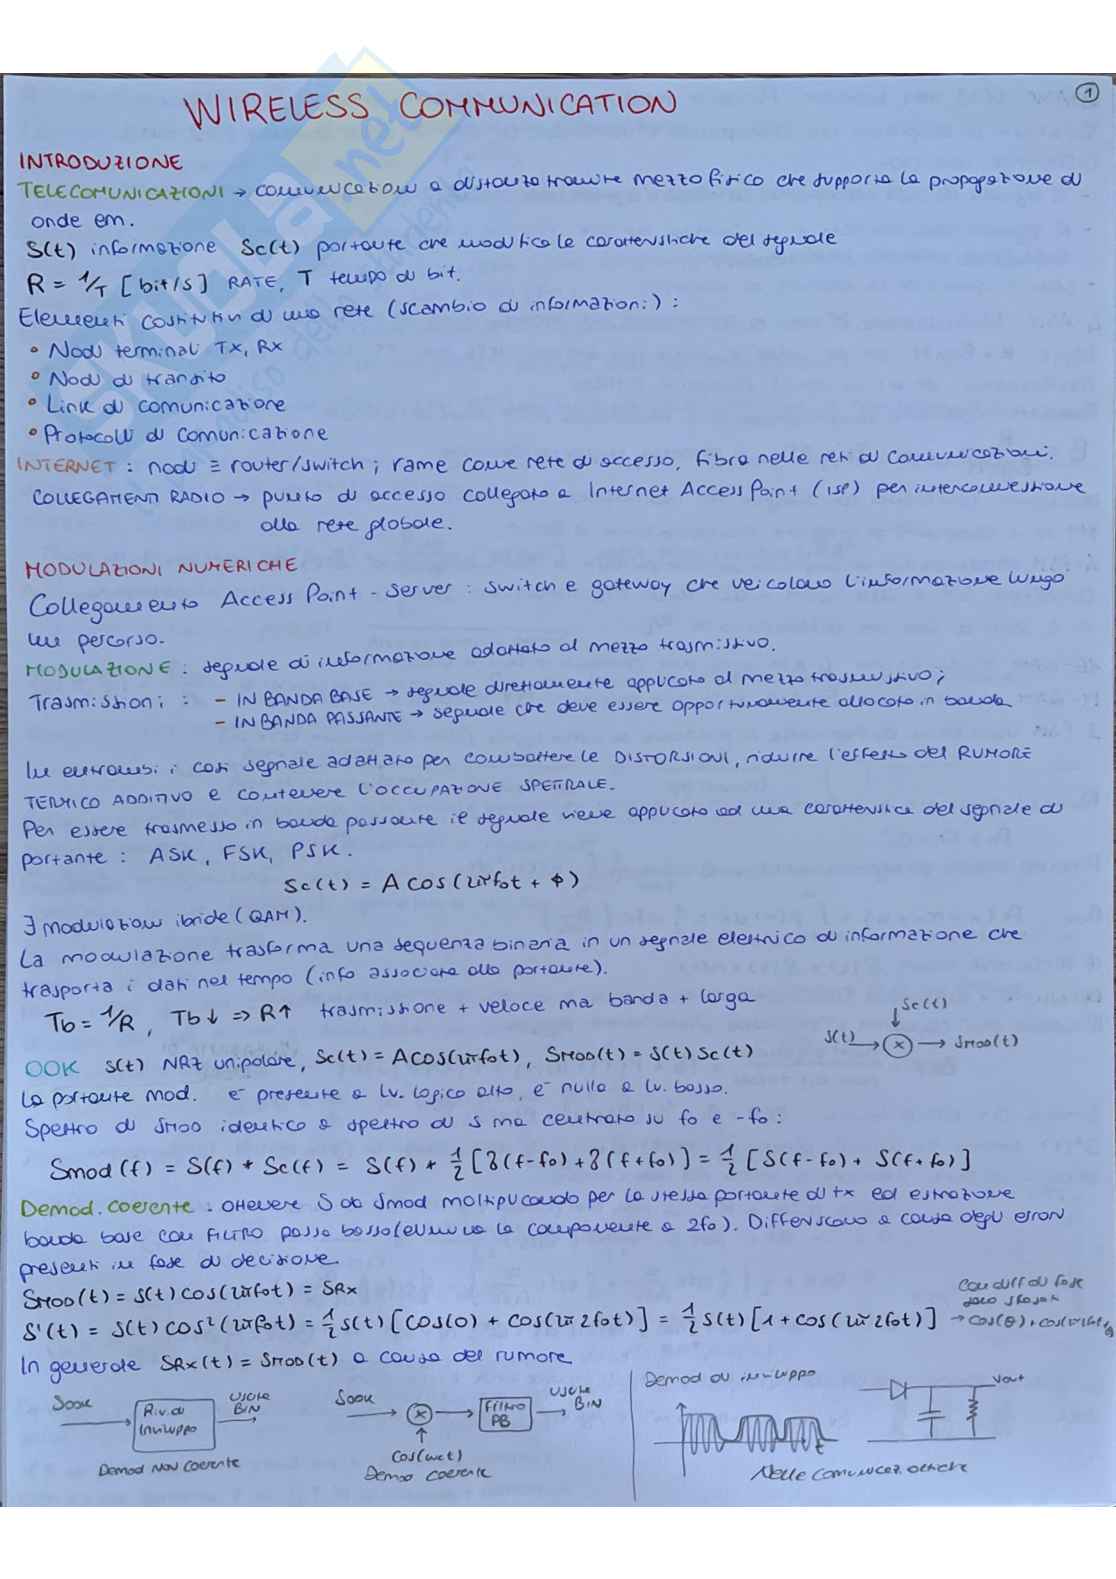 1
WIRELESS COMMUNICATION
INTRODUZIONE
TELECOMUNICAZIONI → comunicazioni a distanza tramite mezzo fisico che supporta la propagazione di
onde em.
S(t) informazione Sc(t) portante che modifica le caratteristiche del segnale
R = 1/T [bit/s] RATE, T tempo di bit.
Elementi costitutivi di una rete (scambio di informazioni):
• Nodi terminali Tx, Rx
• Nodi di transito
• Link di comunicazione
• Protocolli di comunicazione
INTERNET : nodi ≡ router/switch ; rame come rete di accesso, fibra nelle reti di comunicazioni.
COLLEGAMENTI RADIO → punto di accesso collegato a Internet Access Point (ISP) per interconnessione
alla rete globale.
MODULAZIONI NUMERICHE
Collegamento Access Point - Server : switch e gateway che veicolano l'informazione lungo
un percorso.
MODULAZIONE : segnale di informazione adattato al mezzo trasmissivo.
Trasmissioni : - IN BANDA BASE → segnale direttamente applicato al mezzo trasmissivo;
- IN BANDA PASSANTE → segnale che deve essere opportunamente allocato in banda
In entrambi i casi segnale adattato per combattere le DISTORSIONI, ridurre l'effetto del RUMORE
TERMICO ADDITIVO e contenere l'OCCUPAZIONE SPETTRALE.
Per essere trasmesso in banda passante il segnale viene applicato ad una caratteristica del segnale di
portante : ASK, FSK, PSK.
Sc(t) = A cos(2πfot + φ)
∃ modulazioni ibride (QAM).
La modulazione trasforma una sequenza binaria in un segnale elettrico di informazione che
trasporta i dati nel tempo (info associata alla portante).
Tb = 1/R , Tb↓ => R↑ trasmissione + veloce ma banda + larga
Sc(t)
S(t) → x → Smod(t)
OOK s(t) NRZ unipolare, Sc(t) = A cos(2πfot), SMOD(t) = S(t) Sc(t)
La portante mod. è presente a lv. logico alto, è nulla a lv. basso.
Spettro di SMOD identico a spettro di S ma centrato su fo e -fo :
Smod(f) = S(f) * Sc(f) = S(f) * 1/2 [δ(f-fo) + δ(f+fo)] = 1/2 [S(f-fo) + S(f+fo)]
Demod. coerente : ottenere S da Smod moltiplicando per la stessa portante di tx ed estrazione
banda base con FILTRO passa basso (elimina la componente a 2fo). Differiscono a causa degli errori
presenti in fase di decisione.
SMOD(t) = S(t) cos(2πfot) = SRx
S'(t) = S(t) cos²(2πfot) = 1/2 S(t) [cos(0) + cos(2π2fot)] = 1/2 S(t) [1 + cos(2π2fot)]
Con diff di fase
→ cos(θ) +
In generale SRx(t) = SMOD(t) a causa del rumore
Sook
Riv. di
Inviluppo
Uscita
BIN
Demod Non Coerente
Sook
x
Filtro
PB
Uscita
BIN
cos(wct)
Demod coerente
Demod di inviluppo
t
Vout
Nelle comunicaz. ottiche